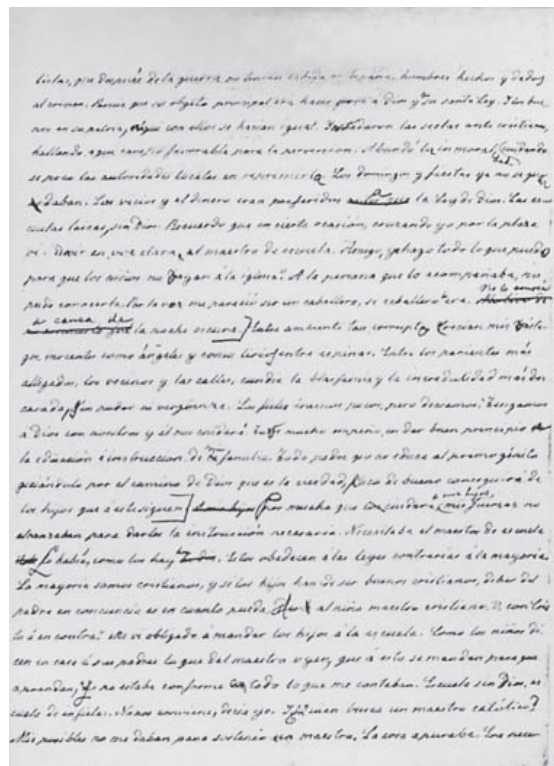 tistas, que después de la guerra no tenían cabida en España, hombres hechos y dados
al crimen. Parece que su objeto principal era hacer guerra a Dios y su santa Ley. Y los bue
nos en su patria, aquí con ellos se hacían igual. Instalaron las sectas anti cristianas,
hallando aquí campo favorable para la perversión. Abundó la inmorali dad, cuidando
se poco las autoridades locales en reprimirla. Los domingos y fiestas ya no se guar
daban. Los vicios y el dinero eran preferidos a la Ley de Dios. Las es
cuelas laicas, sin Dios. Recuerdo que en cierta ocasión, cruzando yo por la plaza
oí decir en voz clara, al maestro de escuela. Amigo, yo hago todo lo que puedo
para que los niños no vayan á la iglesia. A la persona que lo acompañaba, no
pude conocerla. Por la voz me pareció ser un caballero, si caballero era. No le conocí
a causa de la noche oscura. En este ambiente tan corrupto, crecían mis hijos
que inocentes como ángeles y como lirios entre espinas. Entre los parientes más
allegados, los vecinos y las calles, cundía la blasfemia y la incredulidad más des
carada, sin pudor ni vergüenza. Los fieles éramos pocos, pero decíamos: Tengamos
á Dios con nosotros y él nos cuidará. Tuve mucho empeño, en dar buen principio á
la educación é instrucción de mi familia. Todo padre que no educa al primogénito
guiándolo por el camino de Dios que es la verdad, poco de bueno conseguirá de
los hijos que á este siguen. Por mucho que cuidara á mis hijos, mis fuerzas no
alcanzaban para darles la instrucción necesaria. Necesitaba el maestro de escuela
Lo había, como los hay. Estos obedecen á las leyes contrarias á la mayoría.
La mayoría somos cristianos, y si los hijos han de ser buenos cristianos, deber del
padre en conciencia es en cuanto pueda, dar al niño maestro cristiano.
Me vi obligado á mandar los hijos á la escuela. Como los niños di
cen en casa á sus padres lo que del maestro oyen, que á esto se mandan para que
aprendan, yo no estaba conforme con todo lo que me contaban. Escuela sin Dios, es
cuela de infieles. No nos conviene, decía yo. Y quien busca un maestro católico?
Mis posibles no me daban para sostener un maestro. La cosa apuraba. Los nece